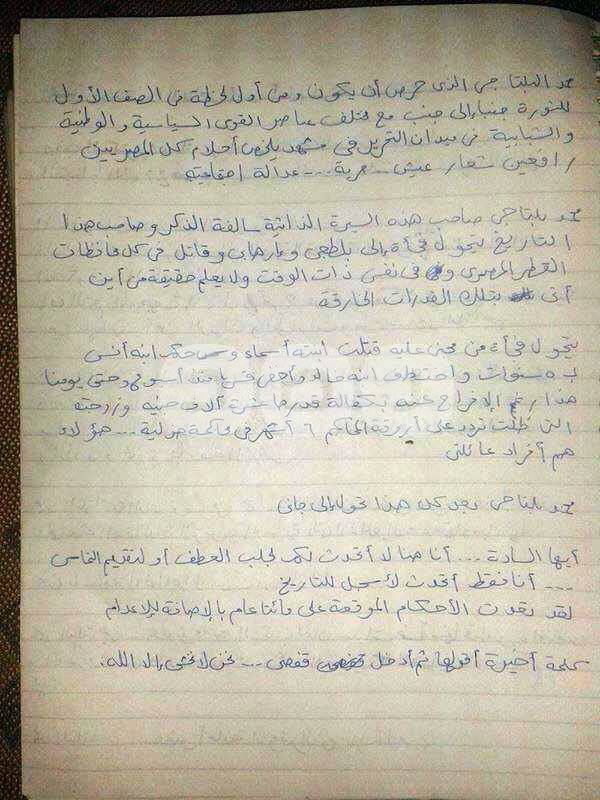 محمد البلتاجى الذى حرص أن يكون ومن أول لحظة فى الصف الأول
للثورة جنبا إلى جنب مع مختلف عناصر القوى السياسية والوطنية
والشبابية فى ميدان التحرير فى مشهد يلخص أحلام كل المصريين
رافعين شعار عيش .. حرية ... عدالة اجتماعية
محمد بلتاجى صاحب هذه السيرة الذاتية سالفة الذكر وصاحب هذا
التاريخ يتحول فجأة إلى بلطجى وإرهابى وقاتل فى كل محافظات
القطر المصرى و فى نفس ذات الوقت ولا يعلم حقيقة من أين
أتى بتلك القدرات الخارقة
يتحول فجأة من مجنى عليه قتلت ابنته أسماء و حكم ابنه أنس
بـ 5 سنوات واختطف ابنه خالد وأخفى قسريا منذ أسبوع وحتى يومنا
هذا رغم الإفراج عنه بكفالة قدرها عشرة آلاف جنيه وزوجته
التى ظلت تردد على أروقة المحاكم 6 أشهر فى محاكمة هزلية ... هؤلاء
هم أفراد عائلتى
محمد بلتاجى بعد كل هذا تحول إلى جانى
أيها السادة ... أنا هنا لا أتحدث لكم لجلب العطف أو لتقديم التماس
... أنا فقط أتحدث لأسجل للتاريخ
لقد تعدت الأحكام الموقعة على مائتا عام بالإضافة للإعدام
كلمة أخيرة أقولها ثم أدخل قفصى ... نحن لا نخشى إلا الله.